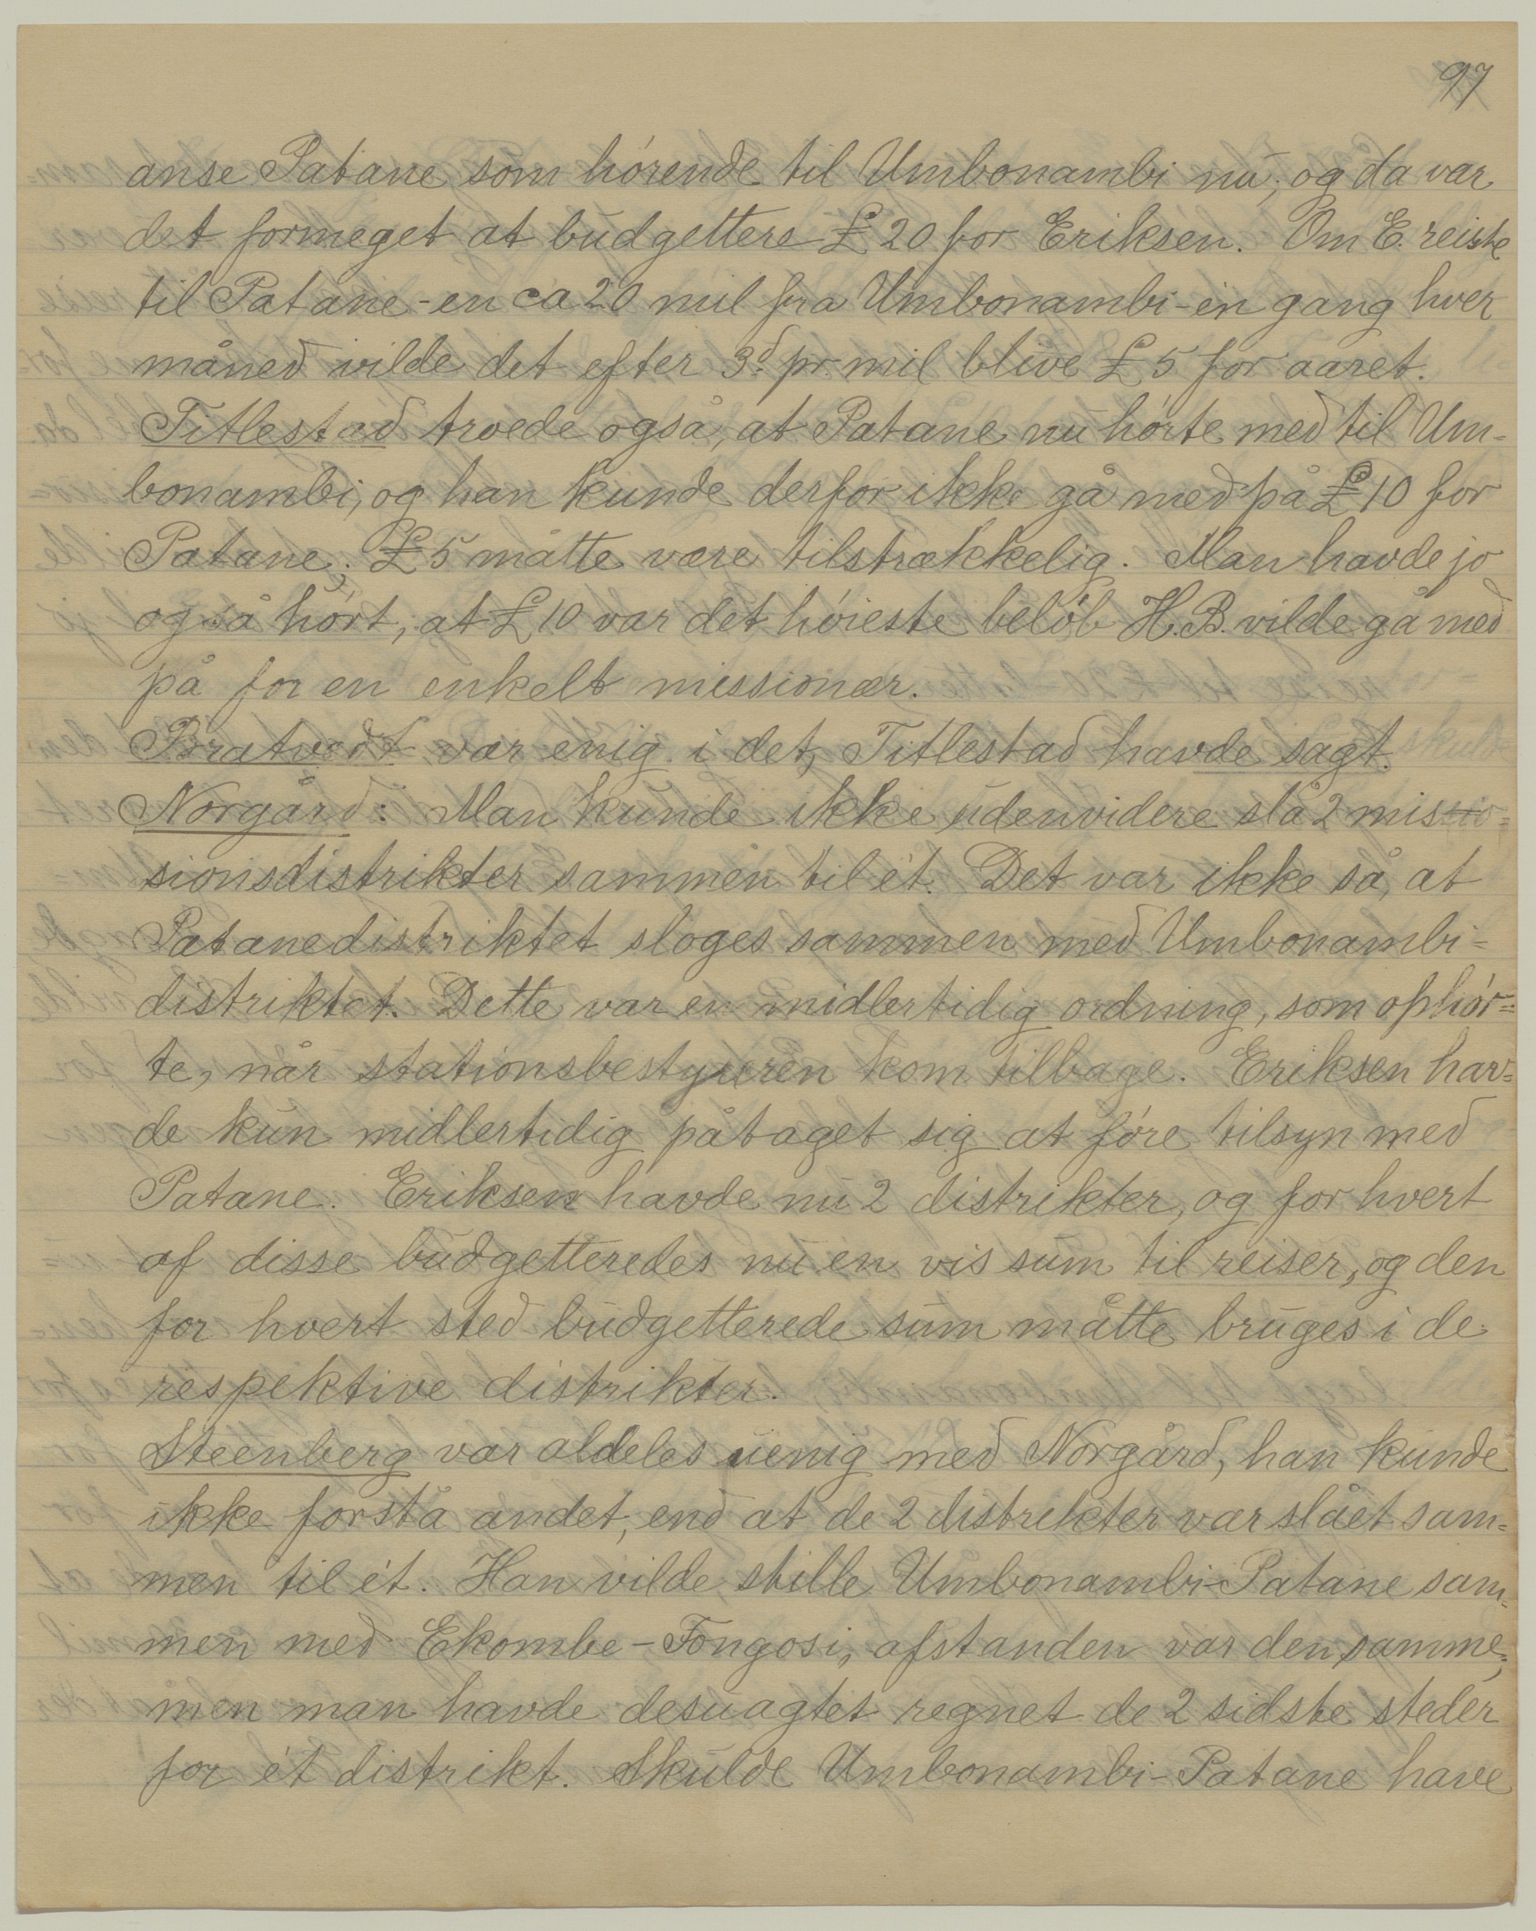 97
anse Patane som hörende til Umbonambi nu; og da var
det formeget at budgettere £20 for Eriksen. Om E. reiste
til Patane - en ca 20 mil fra Umbonambi - én gang hver
måned vilde det efter 3d pr. mil blive £5 for aaret.
Titlestad troede også, at Patane nu hörte med til Um-
bonambi, og han kunde derfor ikke gå med på £10 for
Patane; £5 måtte være tilstrækkelig. Man havde jo
også hört, at £10 var det höieste belöb H.B. vilde gå med
på for en enkelt missionær.
Bratvedt var enig i det, Titlestad havde sagt.
Norgård: Man kunde ikke udenvidere slå 2 missio-
sionsdistrikter sammen til ét. Det var ikke så, at
Patanedistriktet sloges sammen med Umbonambi-
distriktet. Dette var en midlertidig ordning, som ophör-
te, når stationsbestyreren kom tilbage. Eriksen hav-
de kun midlertidig påtaget sig at före tilsyn med
Patane. Eriksen havde nu 2 distrikter, og for hvert
af disse budgetteredes nu en vis sum til reiser, og den
for hvert sted budgetterede sum måtte bruges i de
respektive distrikter.
Steenberg var aldeles uenig med Norgård, han kunde
ikke forstå andet, end at de 2 distrikter var slået sam-
men til ét. Han vilde stille Umbonambi-Patane sam-
men med Ekombe-Fongosi, afstanden var den samme,
men man havde desuagtet regnet de 2 sidste steder
for ét distrikt. Skulde Umbonambi-Patane have